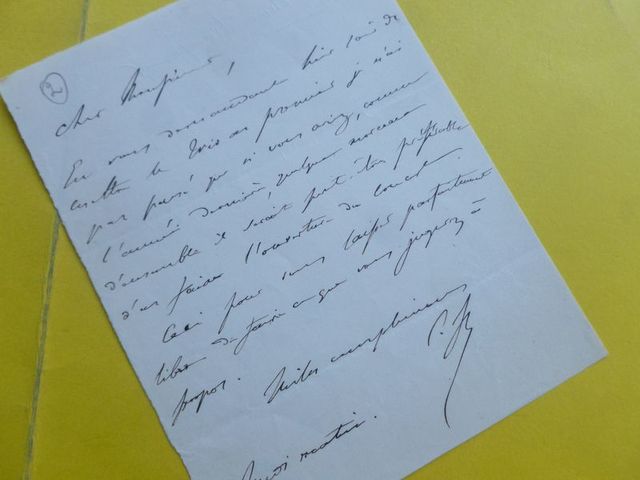 2
Cher Monsieur,
En vous demandant hier soir de
mettre le trio en premier je n'ai
pas pensé que si vous aviez, comme
l'année dernière, quelque morceau
d'ensemble il serait peut-être préférable
d'en faire l'ouverture du concert
Ceci pour vous laisser parfaitement
libre de faire ce que vous jugerez à
propos.
Mille compliments
matin.